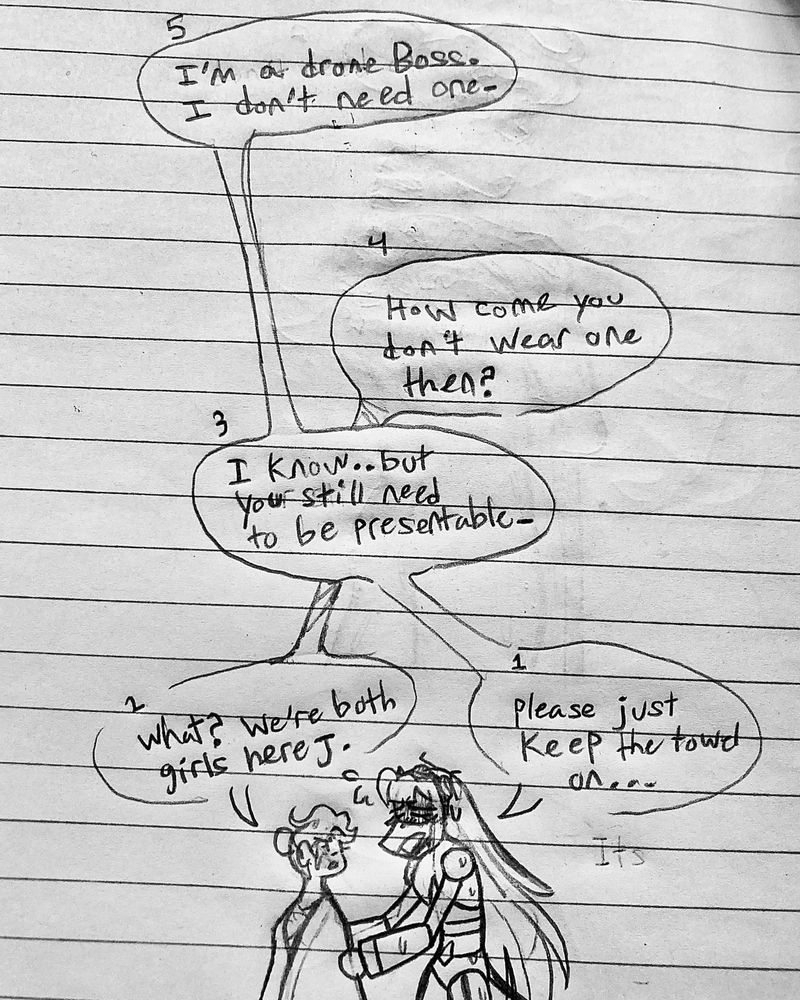 5
I'm a drone Boss.
I don't need one-
4
How come you
don't wear one
then?
3
I know..but
your still need
to be presentable-
1
please just
keep the towel
on...
2
what? we're both
girls here J.
Its